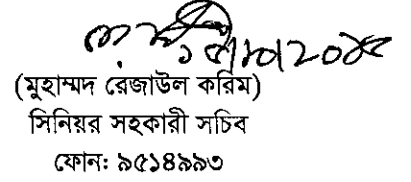 ১৫/১০/২০১৫
(মুহাম্মদ রেজাউল করিম)
সিনিয়র সহকারী সচিব
ফোন: ৯৫১৪৯৯৩